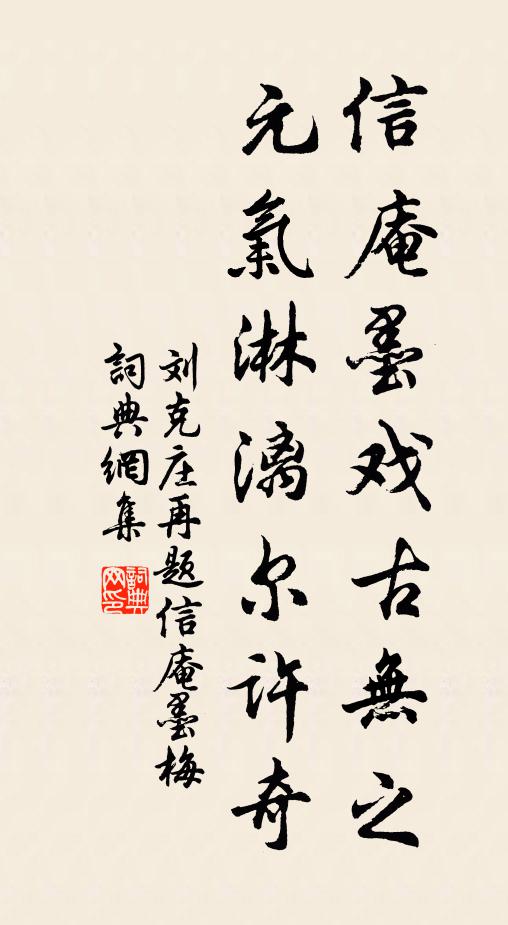 信庵墨戏古無之
元氣淋漓尔許奇
刘克庄再题信庵墨梅
詞典網集
詞典網印